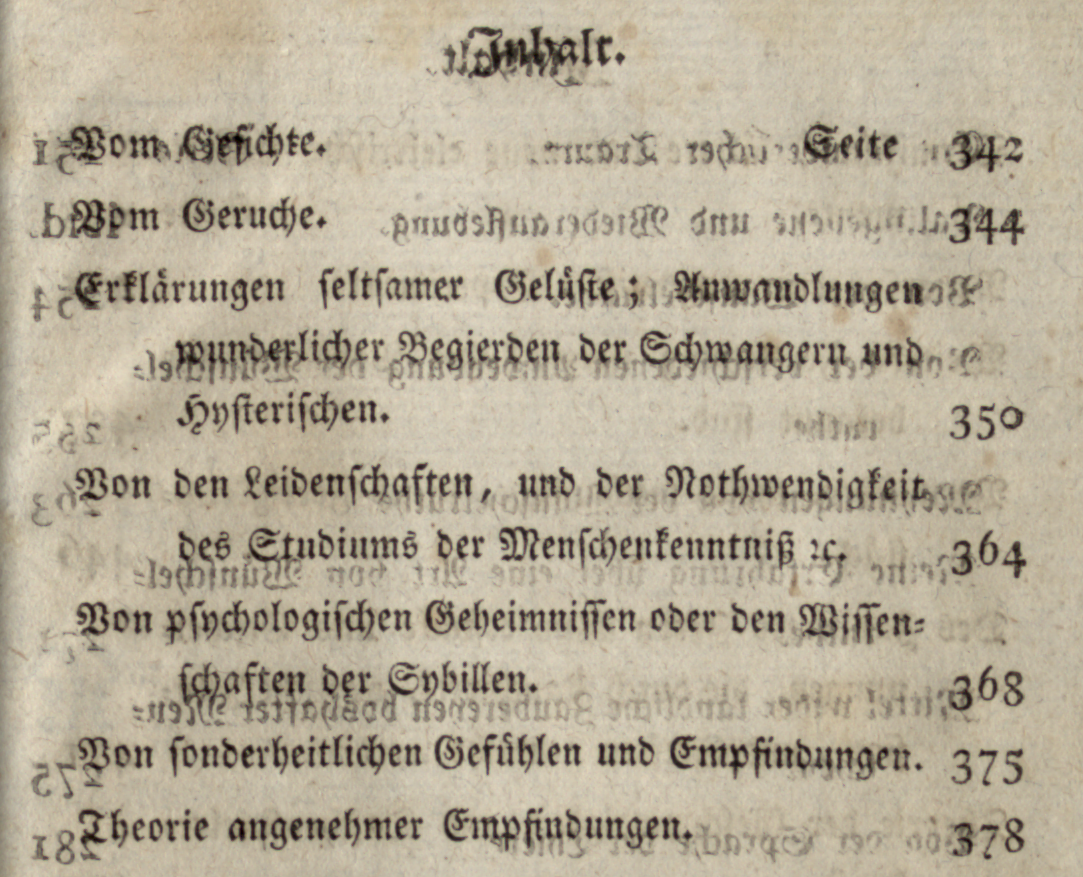 Inhalt.
Vom Gesichte. Seite 342
Vom Geruche. 344
Erklärungen seltsamer Gelüste; Anwandlungen
wunderlicher Begierden der Schwangern und
Hysterischen. 350
Von den Leidenschaften, und der Nothwendigkeit
des Studiums der Menschenkenntniß ꝛc. 364
Von psychologischen Geheimnissen oder den Wissen⸗
schaften der Sybillen. 368
Von sonderheitlichen Gefühlen und Empfindungen. 375
Theorie angenehmer Empfindungen. 378